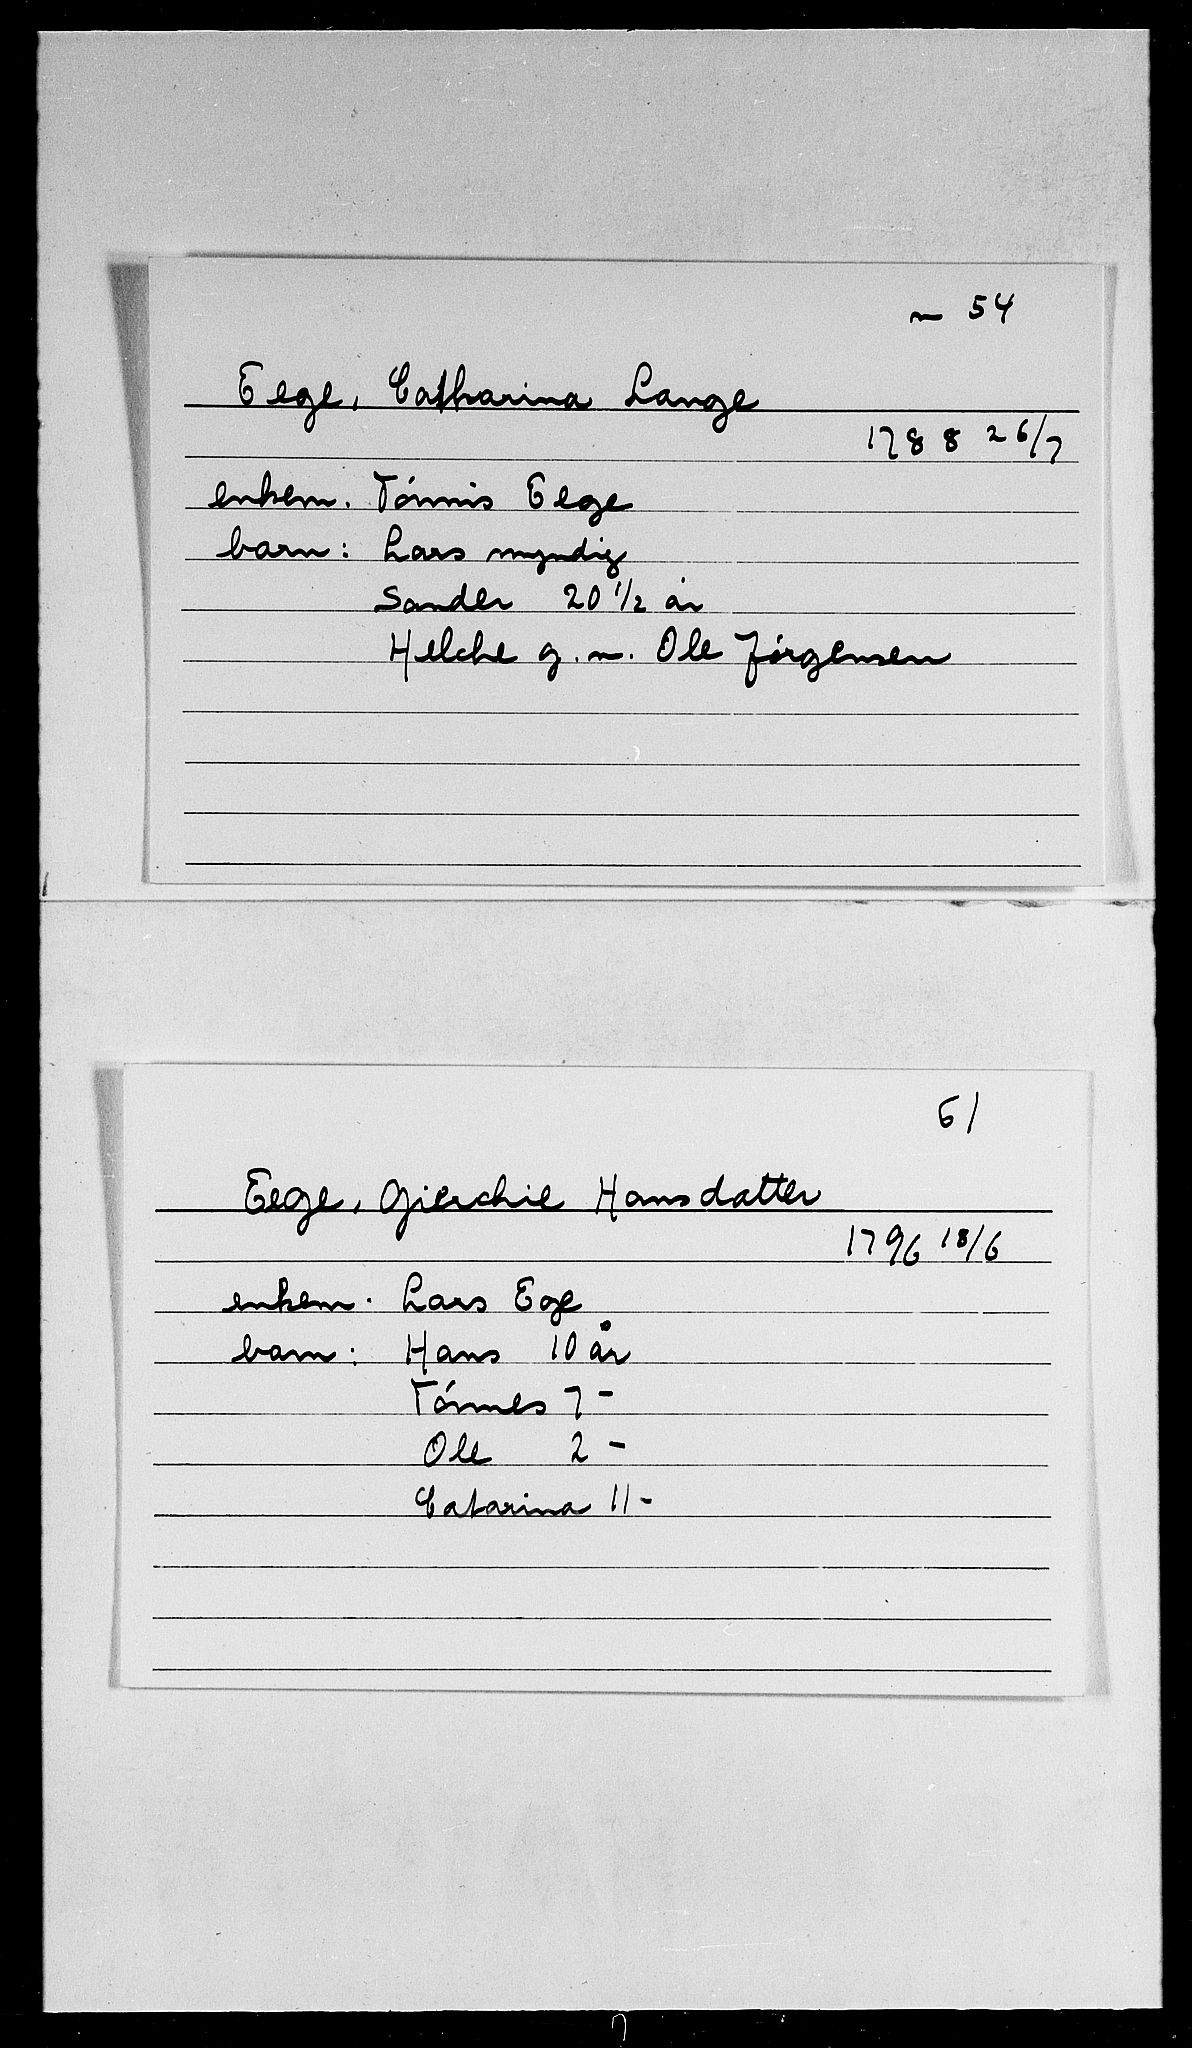 m 54
Eege, Catharina Lange
1788 26/7
enkem. Tönnis Eege
barn: Lars myndig
Sander 20 1/2 år
Helche g.m. Ole Jörgensen
61
Eege, Gierchie Hansdatter
1796 18/6
enkem. Lars Ege
barn: Hans 10 år
Tönnes 7 -
Ole 2 -
Catarina 11 -